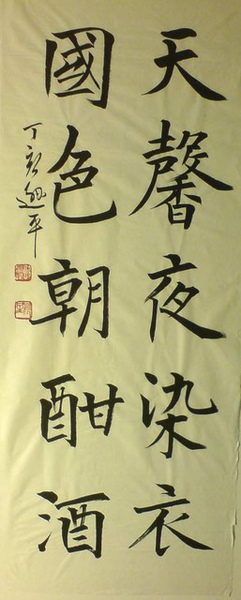 天馨夜染衣
國色朝酣酒
丁亥
平